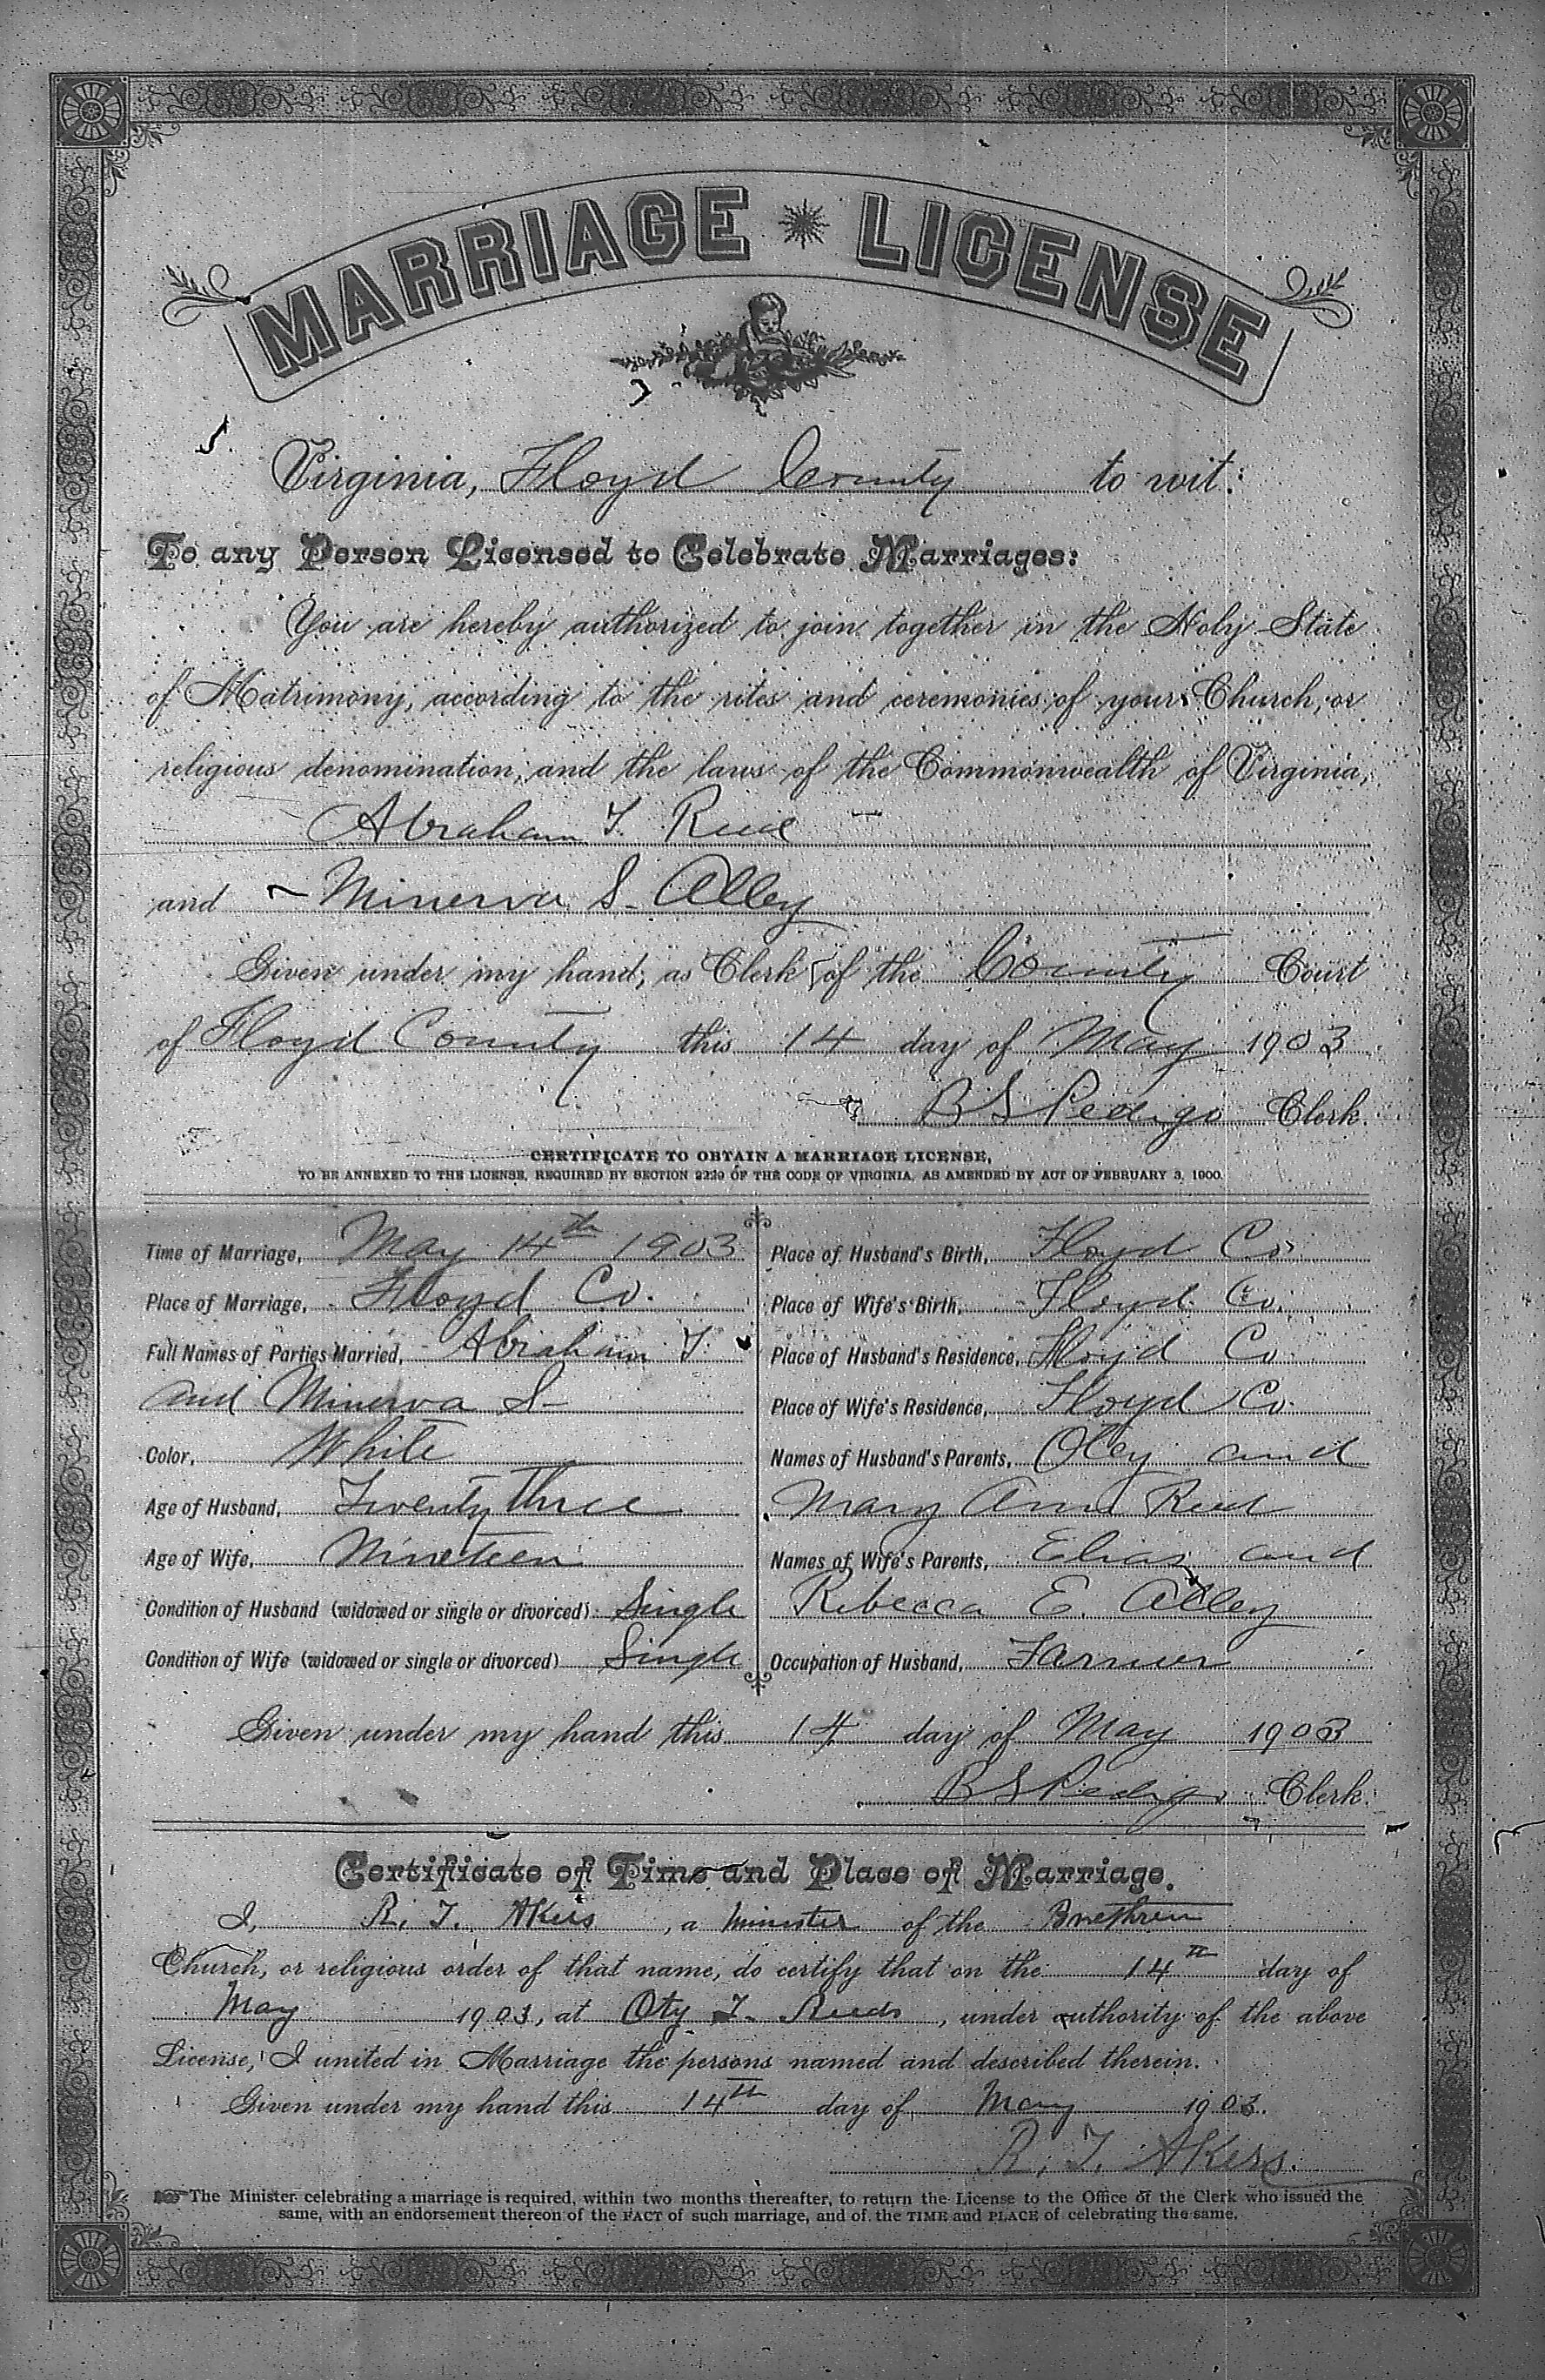 MARRIAGE LICENSE
Virginia, Floyd County to wit:
To any Person Licensed to Celebrate Marriages:
You are hereby authorized to join together in the Holy State
of Matrimony, according to the rites and ceremonies of your Church, or
religious denomination, and the laws of the Commonwealth of Virginia,
Abraham T. Reed
and Minerva S. Alley
Given under my hand, as Clerk of the County Court
of Floyd County this 14 day of May 1903
B S Pedigo Clerk.
CERTIFICATE TO OBTAIN A MARRIAGE LICENSE,
TO BE ANNEXED TO THE LICENSE, REQUIRED BY SECTION 2229 OF THE CODE OF VIRGINIA, AS AMENDED BY ACT OF FEBRUARY 3, 1900.
Time of Marriage, May 14th 1903
Place of Marriage, Floyd Co.
Full Names of Parties Married, Abraham T.
and Minerva S
Color, White
Age of Husband, Twenty Three
Age of Wife, Nineteen
Condition of Husband (widowed or single or divorced) Single
Condition of Wife (widowed or single or divorced) Single
Place of Husband's Birth, Floyd Co
Place of Wife's Birth, Floyd Co.
Place of Husband's Residence, Floyd Co
Place of Wife's Residence, Floyd Co.
Names of Husband's Parents, and
Mary Ann Reed
Names of Wife's Parents, Elias and
Rebecca E. Alley
Occupation of Husband, Farmer
Given under my hand this 14 day of May 1903
B S Pedigo Clerk.
Certificate of Time and Place of Marriage.
I, R. T. Akers, a Minister of the Brethren
Church, or religious order of that name, do certify that on the 14th day of
May 1903, at Reeds, under authority of the above
License, I united in Marriage the persons named and described therein.
Given under my hand this 14th day of May 1903.
R. T. Akers.
The Minister celebrating a marriage is required, within two months thereafter, to return the License to the Office of the Clerk who issued the
same, with an endorsement thereon of the FACT of such marriage, and of the TIME and PLACE of celebrating the same.